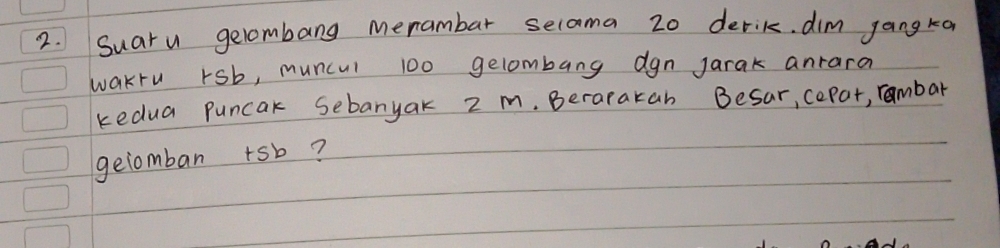 2. Suatu gelombang merambat selama 20 detik. dlm jangka
waktu tsb, muncul 100 gelombang dgn jarak antara
kedua puncak sebanyak 2 m. Berapakah Besar, cepat, rambat
gelomban tsb ?